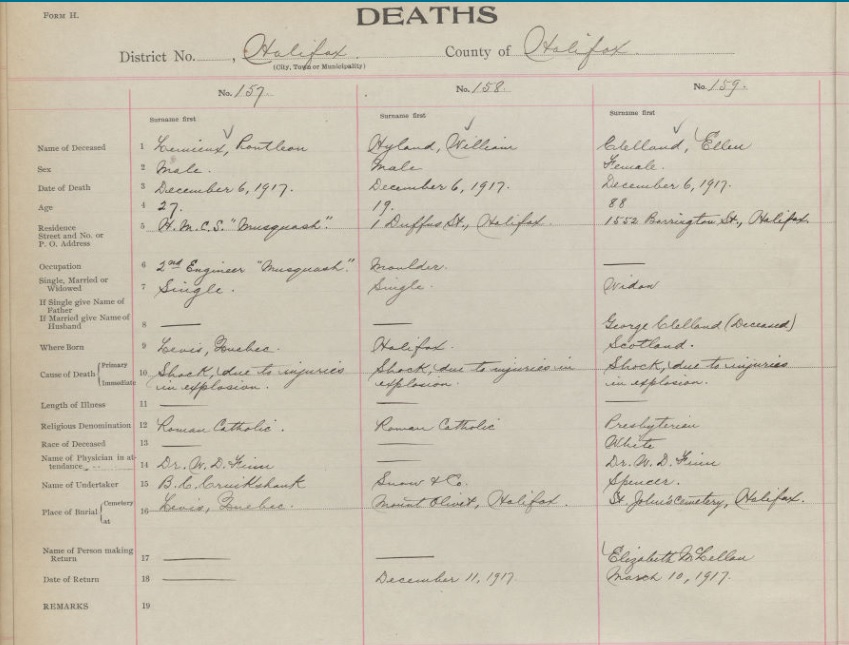 FORM H.
DEATHS
District No. , Halifax County of Halifax
(City, Town or Municipality)
No. 157. No. 158. No. 159.
Surname first Surname first Surname first
Name of Deceased 1 Lemieux, Hyland, William Clelland, Ellen
Sex 2 Male. Male Female.
Date of Death 3 December 6, 1917. December 6, 1917. December 6, 1917.
Age 4 27. 19. 88
Residence Street and No. or P. O. Address 5 H.M.C.S. "Musquash". 1 Duffus St., Halifax 1552 Barrington St., Halifax
Occupation 6 2nd Engineer "Musquash". Moulder. ——
Single, Married or Widowed 7 Single. Single. Widow
If Single give Name of Father
If Married give Name of Husband 8 —— —— George Clelland (Deceased)
Where Born 9 Levis, Quebec. Halifax. Scotland.
Cause of Death { Primary Immediate 10 Shock, due to injuries in explosion. Shock, due to injuries in explosion. Shock, due to injuries in explosion.
Length of Illness 11 —— —— ——
Religious Denomination 12 Roman Catholic. Roman Catholic Presbyterian
Race of Deceased 13 —— —— White
Name of Physician in attendance 14 Dr. W. D. Finn —— Dr. W. D. Finn
Name of Undertaker 15 B. C. Cruikshank Snow & Co. Spencer.
Place of Burial { Cemetery at 16 Levis, Quebec. Mount Olivet, Halifax. St. John's Cemetery, Halifax.
Name of Person making Return 17 —— —— Elizabeth McLellan
Date of Return 18 —— December 11, 1917 March 10, 1917.
REMARKS 19